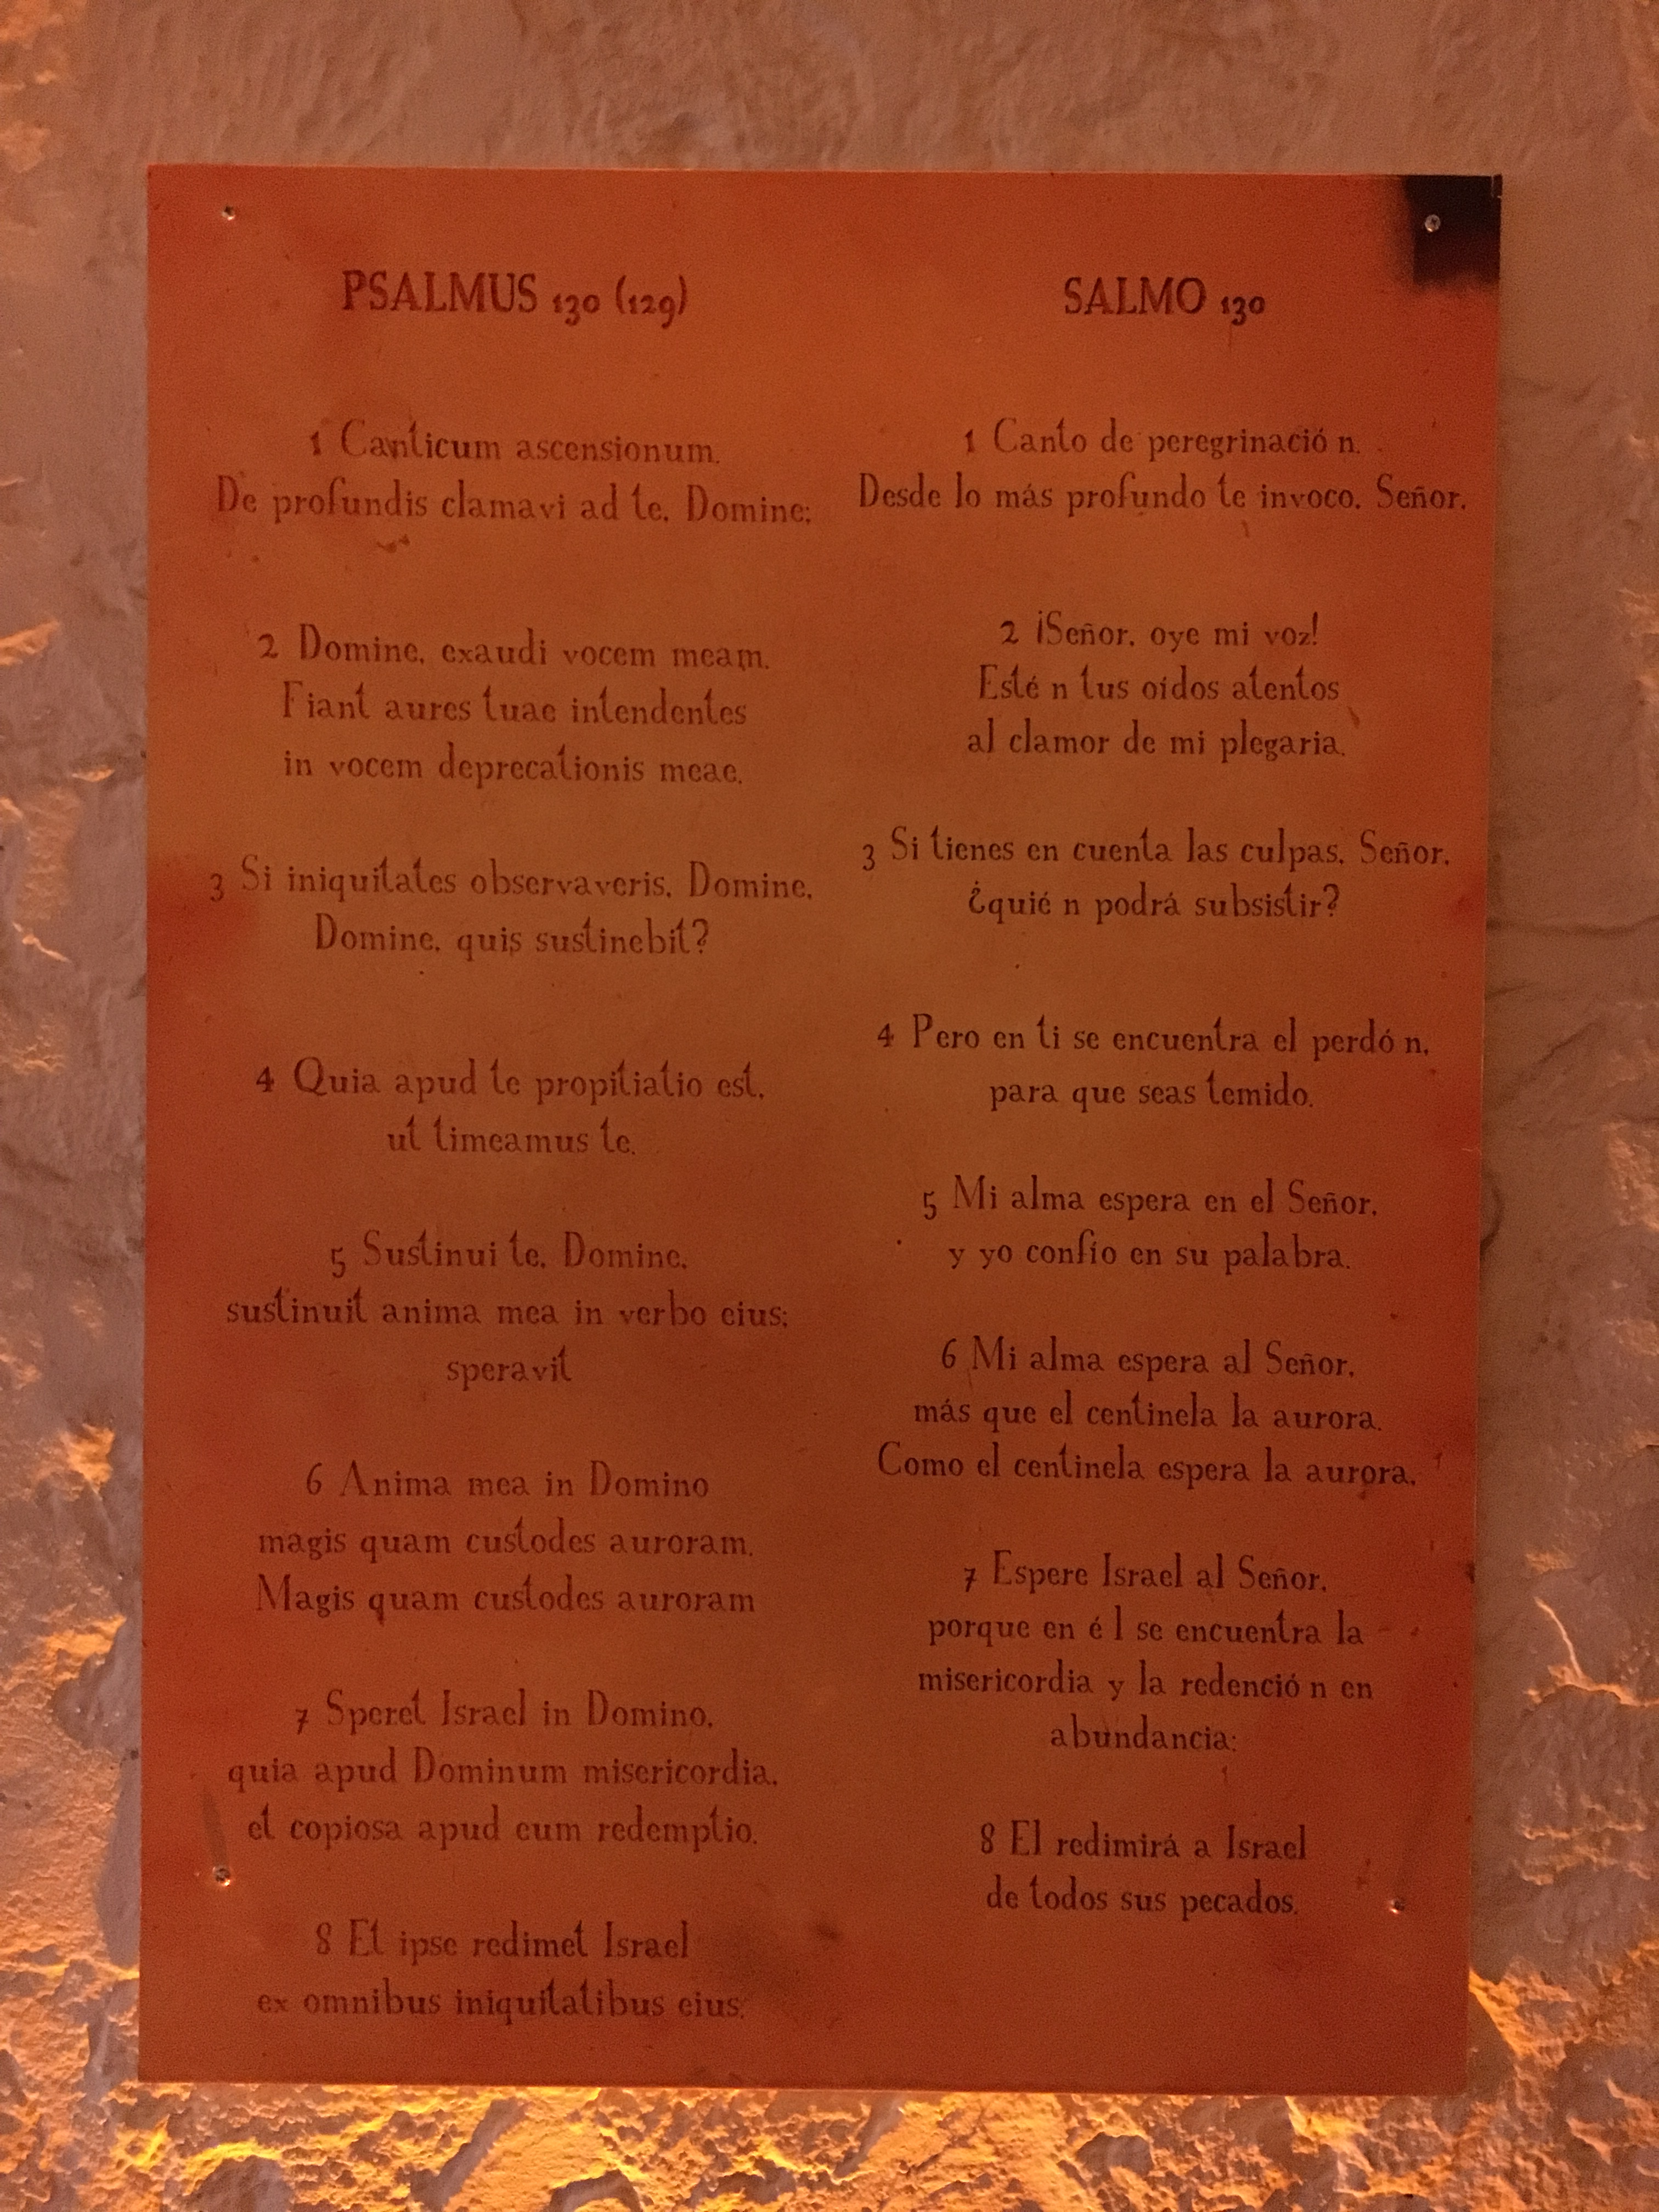 PSALMUS 130 (129)
1 Canticum ascensionum.
De profundis clamavi ad te, Domine;
2 Domine, exaudi vocem meam.
Fiant aures tuae intendentes
in vocem deprecationis meae.
3 Si iniquitates observaveris, Domine,
Domine, quis sustinebit?
4 Quia apud te propitiatio est,
ut timeamus te.
5 Sustinui te, Domine,
sustinuit anima mea in verbo eius;
speravit
6 Anima mea in Domino
magis quam custodes auroram.
Magis quam custodes auroram
7 Speret Israel in Domino,
quia apud Dominum misericordia,
et copiosa apud eum redemptio.
8 Et ipse redimet Israel
ex omnibus iniquitatibus eius.
SALMO 130
1 Canto de peregrinació n.
Desde lo más profundo te invoco, Señor.
2 ¡Señor, oye mi voz!
Esté n tus oídos atentos
al clamor de mi plegaria.
3 Si tienes en cuenta las culpas, Señor,
¿quié n podrá subsistir?
4 Pero en ti se encuentra el perdó n,
para que seas temido.
5 Mi alma espera en el Señor,
y yo confío en su palabra.
6 Mi alma espera al Señor,
más que el centinela la aurora.
Como el centinela espera la aurora,
7 Espere Israel al Señor,
porque en é l se encuentra la
misericordia y la redenció n en
abundancia:
8 El redimirá a Israel
de todos sus pecados.